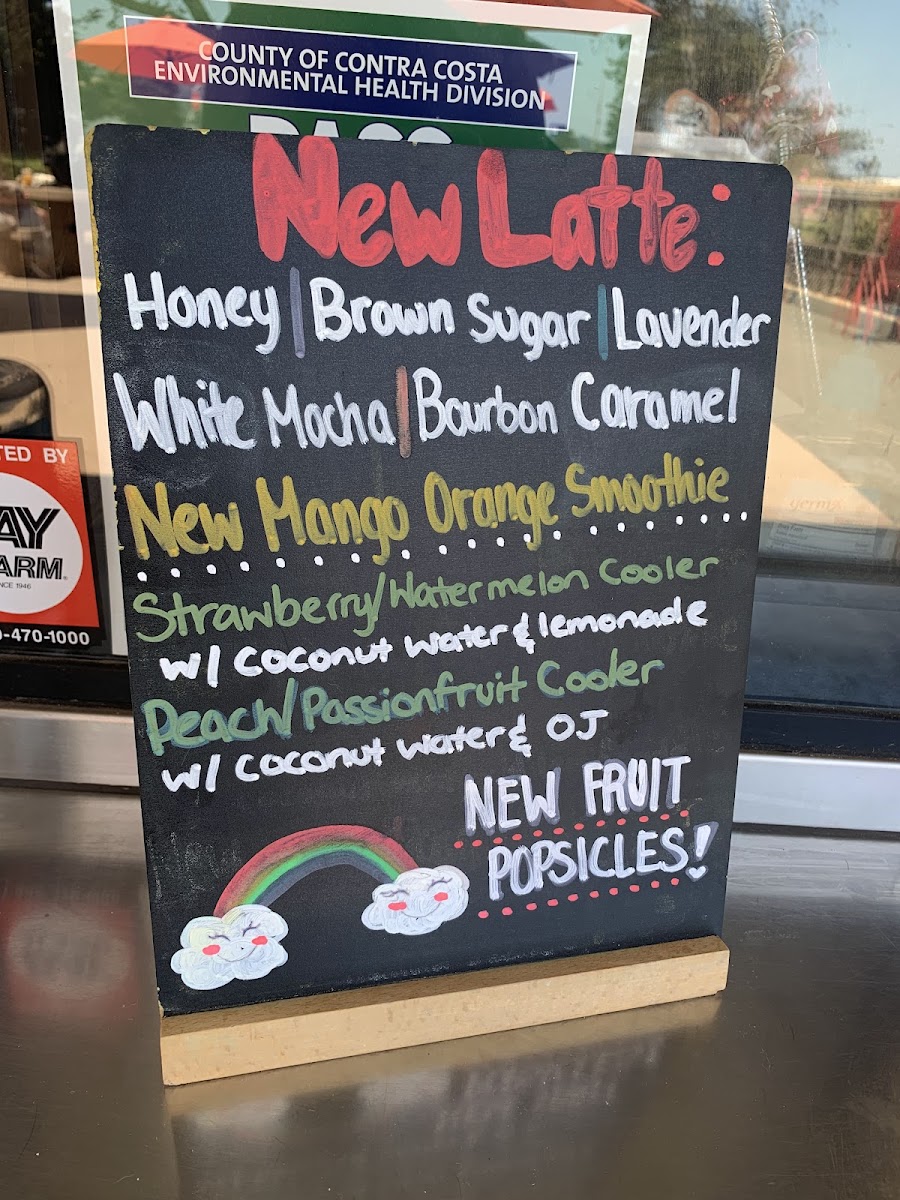 COUNTY OF CONTRA COSTA
ENVIRONMENTAL HEALTH DIVISION
New Latte:
Honey | Brown Sugar | Lavender
White Mocha | Bourbon Caramel
New Mango Orange Smoothie
Strawberry/Watermelon Cooler
w/ Coconut Water & lemonade
Peach/Passionfruit Cooler
w/ Coconut Water & OJ
NEW FRUIT
POPSICLES!
BY
SINCE 1946
-470-1000